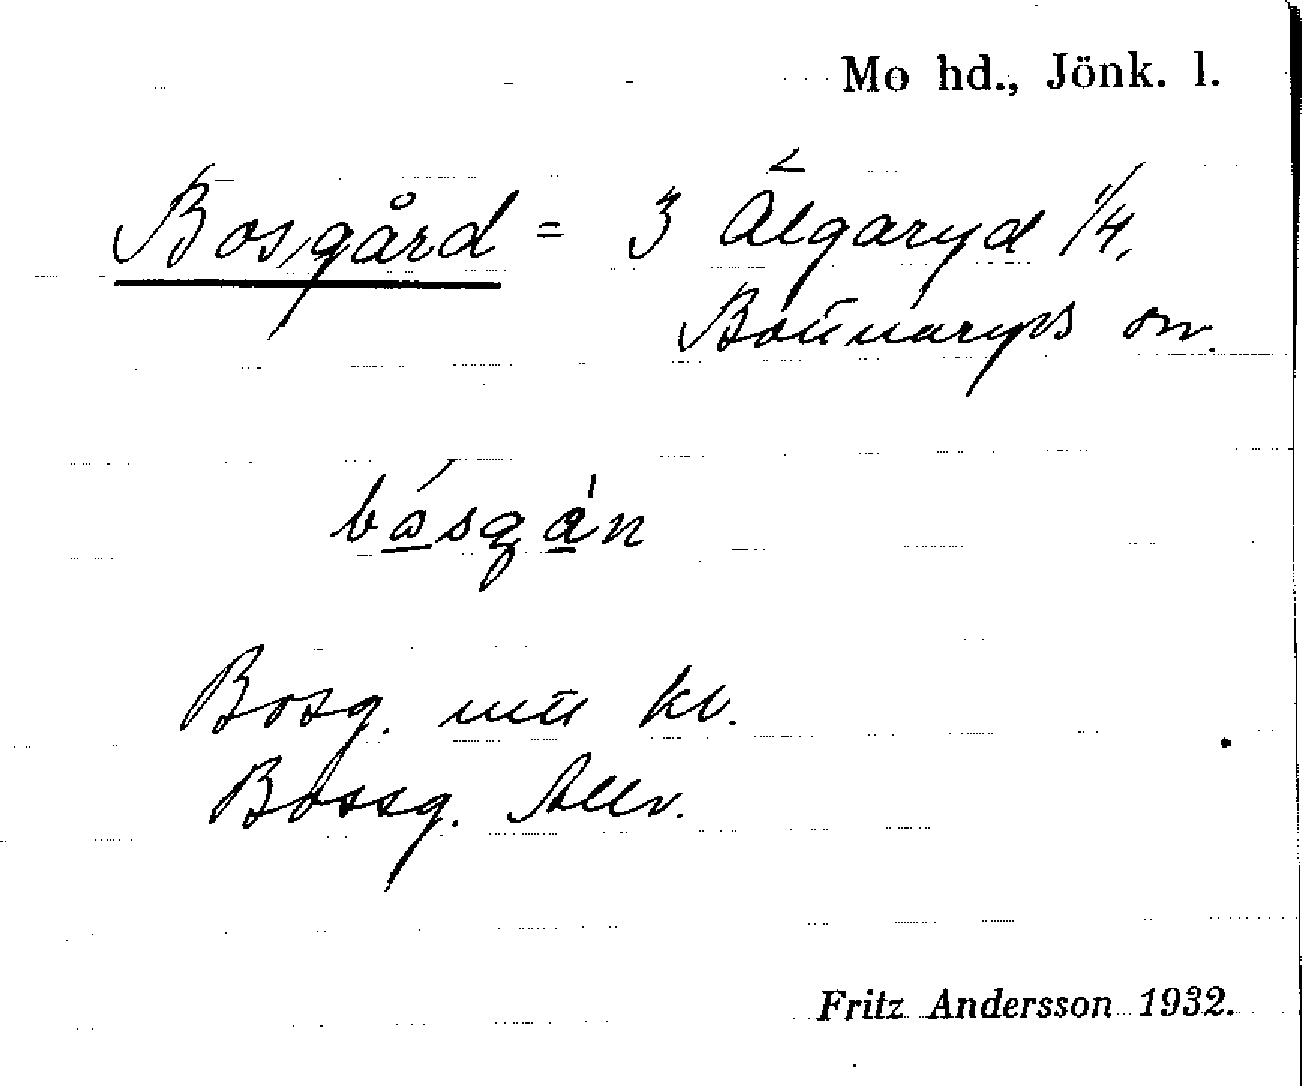 Mo hd., Jönk. l.
Bosgård = 3 Älgaryd 1/4,
Bottnaryds sn.
bósgán
Bosg. utt kv.
Bossg. Allv.
Fritz Andersson 1932.